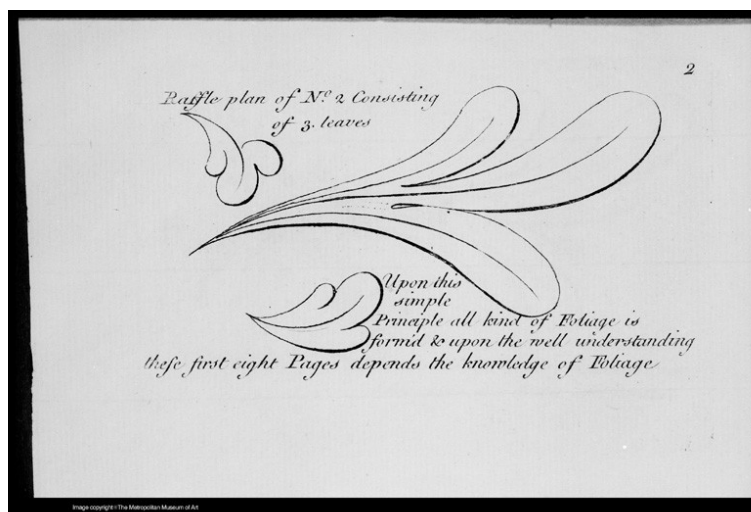 2
Raffle plan of Nº 2 Consisting
of 3. leaves
Upon this
simple
Principle all kind of Foliage is
form'd & upon the well understanding
these first eight Pages depends the knowledge of Foliage
Image copyright © The Metropolitan Museum of Art